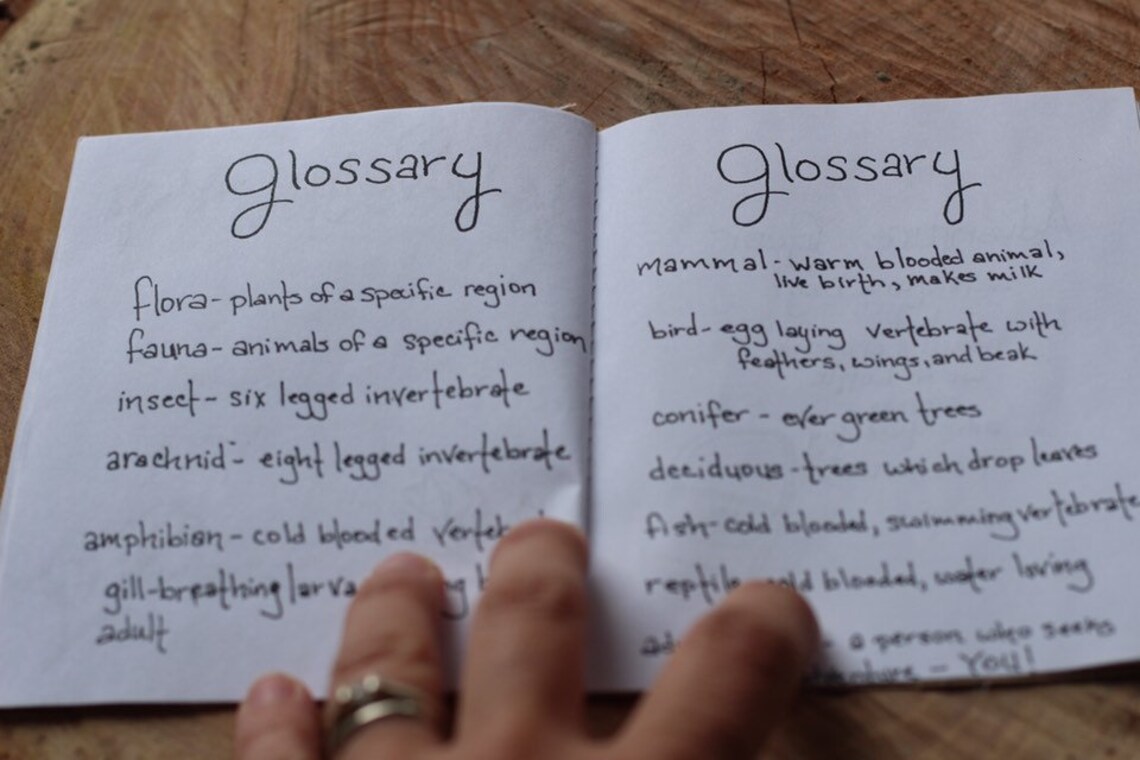 glossary
flora - plants of a specific region
fauna - animals of a specific region
insect - six legged invertebrate
arachnid - eight legged invertebrate
amphibian - cold blooded
gill-breathing
adult
glossary
mammal - warm blooded animal,
live birth, makes milk
bird - egg laying vertebrate with
feathers, wings, and beak
conifer - ever green trees
deciduous - trees which drop leaves
fish - cold blooded, swimming vertebrate
blooded, water loving
- a person who seeks
- YOU!